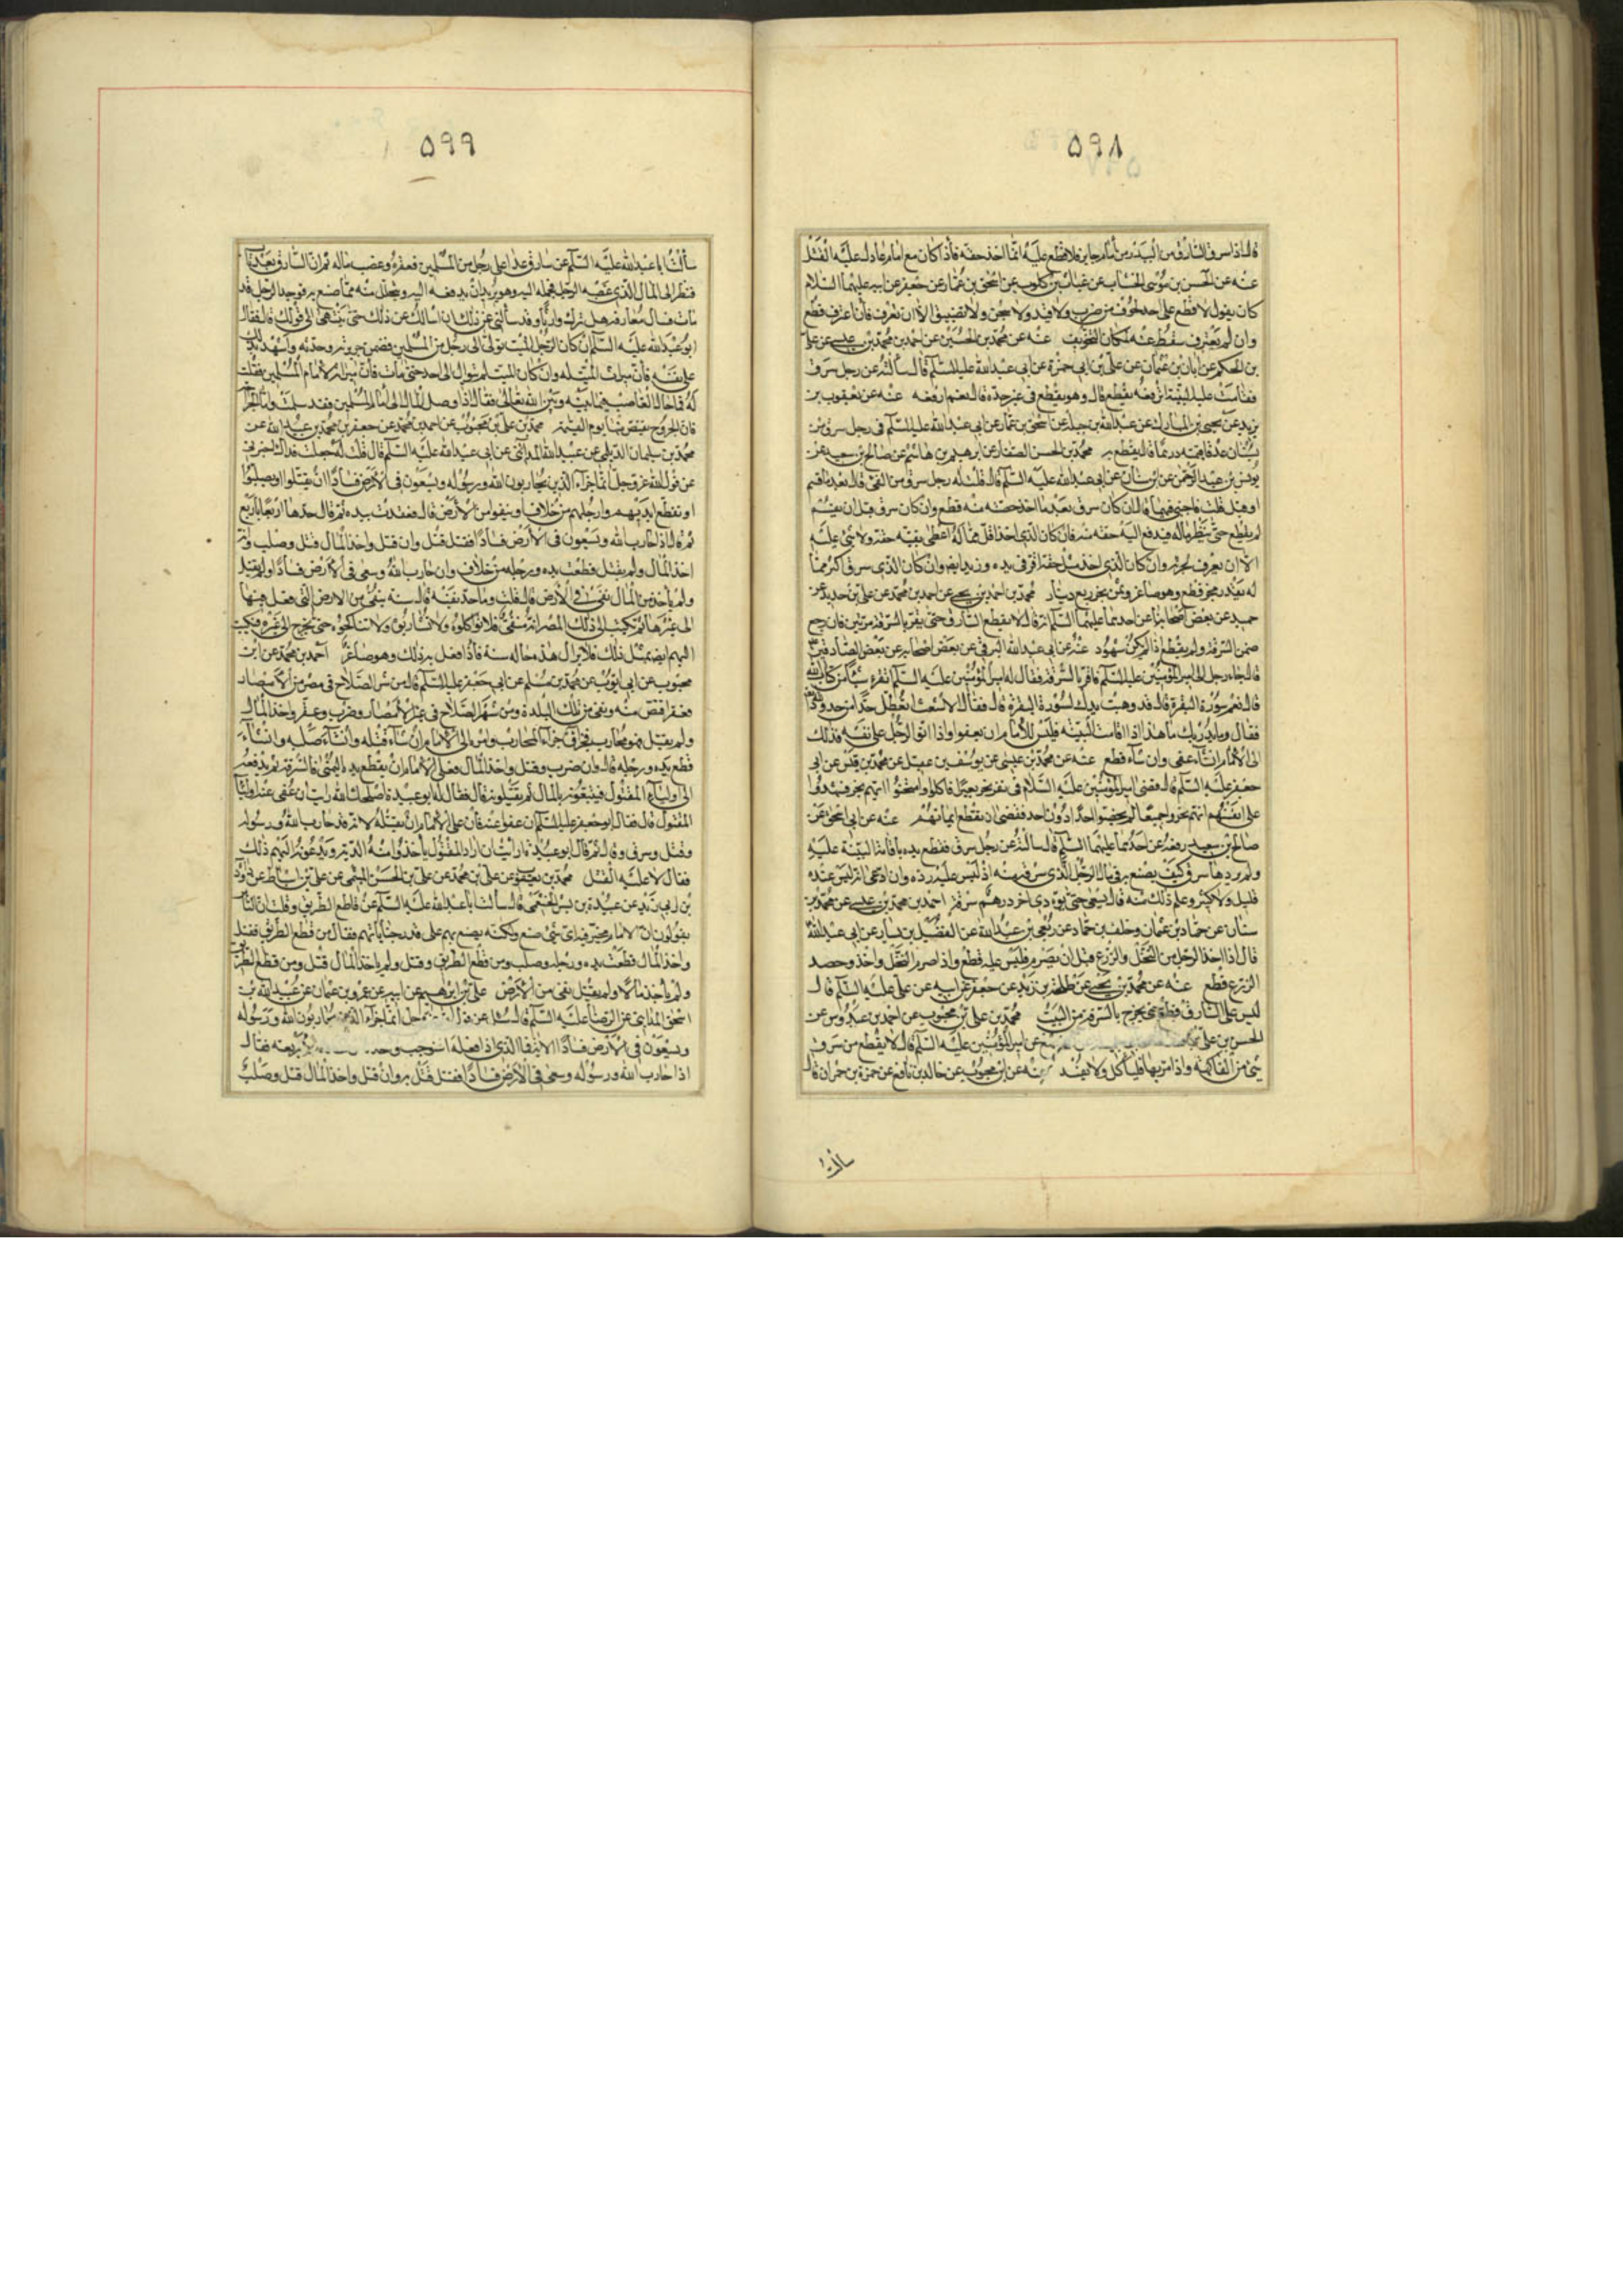 ٥٩٨
قال اذا سرق السارق من البيدر من امام جاير فلا قطع عليه انما اخذ حقه فاذا كان مع امام عادل عليه القتل
عنه عن الحسن بن موسى الخشاب عن غياث بن كلوب عن اسحق بن عمار عن جعفر عن ابيه عليهما السلام
كان يقول لا قطع على احد يخوف من ضرب ولا قيد ولا سجن ولا تعنيف الا ان يعترف فان اعترف قطع
وان لم يعترف سقط عنه لمكان التخويف عنه عن محمد بن الحسين عن احمد بن محمد بن عيسى عن علي
بن الحكم عن ابان بن عثمان عن علي بن ابي حمزة عن ابي عبد الله عليه السلم قال سالته عن رجل سرق
فقامت عليه البينة ايرفعه يقطع قال وهو يقطع في غير حده قال نعم ارفعه عنه عن يعقوب بن
يزيد عن يحيى بن المبارك عن عبد الله بن جبلة عن اسحق بن عمار عن ابي عبد الله عليه السلم في رجل سرق من
بستان عذقا قيمته درهمان قال يقطع به محمد بن الحسن الصفار عن ابرهيم بن هاشم عن صالح بن سعيد عن
يونس بن عبد الرحمن عن بن سنان عن ابي عبد الله عليه السلم قال قلت له رجل سرق من الفئ قال بعد ما قسم
او قبل قلت فاجبني فيهما قال ان كان سرق بعد ما اخذ حصته منه قطع وان كان سرق قبل ان يقسم
لم يقطع حتى ينظر ماله فيدفع اليه حقه منه فان كان الذي اخذ اقل مما له اعطى بقية حقه ولا شئ عليه
الا ان يعزر لجرأته وان كان الذي اخذ مثل حقه اقر في يده وزيد ايضا وان كان الذي سرق اكثر مما
له بقدر مجن قطع وهو صاغر وثمن مجن ربع دينار محمد بن احمد بن يحيى عن احمد بن محمد عن علي بن حديد عن
جميل عن بعض اصحابنا عن احدهما عليهما السلم انه قال لا يقطع السارق حتى يقر بالسرقة مرتين فان رجع
ضمن السرقة ولم يقطع اذا لم يكن شهود عنه عن ابي عبد الله البرقي عن بعض اصحابه عن بعض الصادقين
قال جاء رجل الى امير المؤمنين عليه السلم فاقر بالسرقة فقال له امير المؤمنين عليه السلم اتقرء شيئا من كتاب الله
قال نعم سورة البقرة قال قد وهبت يدك لسورة البقرة قال فقال الاشعث اتعطل حدا من حدود الله
فقال وما يدريك ما هذا اذا قامت البينة فليس للامام ان يعفو واذا اقر الرجل على نفسه فذلك
الى الامام ان شاء عفى وان شاء قطع عنه عن محمد بن عيسى عن يوسف بن عقيل عن محمد بن قيس عن ابي
جعفر عليه السلم قال قضى امير المؤمنين عليه السلام في نفر نحروا بعيرا فاكلوه فامتحنوا ايهم نحر فشهدوا
على انفسهم انهم نحروه جميعا لم يخصوا احدا دون احد فقضى ان تقطع ايمانهم عنه عن ابي اسحق عن
صالح بن سعيد رفعه عن احدهما عليهما السلم قال سالته عن رجل سرق فقطع يده باقامة البينة عليه
ولم يرد ما سرق كيف يصنع به في مال الرجل الذي سرق منه اذ ليس عليه رده وان ادعى انه ليس عنده
قليل ولا كثير وعلم ذلك منه قال يستسعى حتى يؤدي اخر درهم سرقه احمد بن محمد بن عيسى عن محمد بن
سنان عن حماد بن عثمان وخلف بن حماد عن ربعي بن عبد الله عن الفضيل بن يسار عن ابي عبد الله
قال اذا اخذ الرجل من النخل والزرع قبل ان يصرم فليس عليه قطع واذا صرم النخل واخذ وحصد
الزرع قطع عنه عن محمد بن يحيى عن طلحة بن زيد عن جعفر عن ابيه عن علي عليه السلم قال
ليس على السارق قطع حتى يخرج بالسرقة من البيت محمد بن علي بن محبوب عن احمد بن عبدوس عن
الحسن بن علي عن امير المؤمنين عليه السلم قال لا يقطع من سرق
شئ من الفاكهة واذا مر بها فليأكل ولا يفسد عنه عن ابن محبوب عن خالد بن نافع عن حمزة بن حمران قال
سالت
٥٩٩
سألت ابا عبد الله عليه السلم عن سارق عدا على رجل من المسلمين فعقره وغصب ماله ثم ان السارق بعد تاب
فنظر الى المال الذي غصبه الرجل فحمله اليه وهو يريد ان يدفعه اليه ويتحلل منه مما صنع به فوجد الرجل قد
مات فسال معارفه هل ترك وارثا وقد سالني عن ذلك ان اسالك عن ذلك حتى ينتهى الى قولك قال فقال
ابو عبد الله عليه السلم ان كان الرجل الميت توالى الى رجل من المسلمين فضمن جريرته وحدثه واشهد بذلك
على نفسه فان ميراث الميت له وان كان الميت لم يتوال الى احد حتى مات فان ميراثه لامام المسلمين فقلت
له فما حال الغاصب فيما بينه وبين الله تعالى فقال اذا وصل المال الى امام المسلمين فقد سلم واما الجراح
فان الجروح تقتص منه يوم القيمة محمد بن علي بن محبوب عن احمد بن محمد عن جعفر بن محمد بن عبيد الله عن
محمد بن سليمان الديلمي عن عبيد الله المدائني عن ابي عبد الله عليه السلم قال قلت له جعلت فداك اخبرني
عن قول الله عز وجل انما جزاء الذين يحاربون الله ورسوله ويسعون في الارض فسادا ان يقتلوا او يصلبوا
او تقطع ايديهم وارجلهم من خلاف او ينفوا من الارض قال فعقد بيده ثم قال خذها اربعا باربع
ثم قال اذا حارب الله وسعون في الارض فسادا فقتل قتل وان قتل واخذ المال قتل وصلب وان
اخذ المال ولم يقتل قطعت يده ورجله من خلاف وان حارب الله وسعى في الارض فسادا ولم يقتل
ولم ياخذ من المال نفى في الارض قال قلت وما حد نفيه قال سنة ينفى من الارض التي فعل فيها
الى غيرها ثم يكتب الى ذلك المصر انه منفي فلا تؤاكلوه ولا تشاربوه ولا تناكحوه حتى يخرج الى غيره فيكتب
اليهم ايضا بمثل ذلك فلا يزال هذه حاله سنة فاذا فعل به ذلك وهو صاغر احمد بن محمد عن ابن
محبوب عن ابي ايوب عن محمد بن مسلم عن ابي جعفر عليه السلم قال من شهر السلاح في مصر من الامصار
فعقر اقتص منه ونفي من تلك البلدة ومن شهر السلاح في غير الامصار وضرب وعقر واخذ المال
ولم يقتل فهو محارب فجزاؤه جزاء المحارب وامره الى الامام ان شاء قتله وان شاء صلبه وان شاء
قطع يده ورجله قال وان ضرب وقتل واخذ المال فعلى الامام ان يقطع يده اليمنى بالسرقة ثم يدفعه
الى اولياء المقتول فيتبعونه بالمال ثم يقتلونه قال فقال له ابو عبيدة اصلحك الله رايت ان عفى عنه اولياء
المقتول قال فقال ابو جعفر عليه السلم ان عفوا عنه فان على الامام ان يقتله لانه قد حارب الله ورسوله
وقتل وسرق وقال ثم قال ابو عبيدة ارايت ان اراد اولياء المقتول ياخذوا منه الدية ويدعونه الهم ذلك
فقال لا عليه القتل محمد بن يعقوب عن علي بن محمد عن علي بن الحسن التيمي عن علي بن اسباط عن داود
بن ابي يزيد عن عبيدة بن بشر الخثعمي قال سالت ابا عبد الله عليه السلم عن قاطع الطريق وقلت ان الناس
يقولون ان الامام مخير فيه اي شئ صنع ولكنه يصنع بهم على قدر جناياتهم فقال من قطع الطريق فقتل
واخذ المال قطعت يده ورجله وصلب ومن قطع الطريق وقتل ولم ياخذ المال قتل ومن قطع الطريق
ولم يأخذ مالا ولم يقتل نفى من الارض علي بن ابرهيم عن ابيه عن عمرو بن عثمان عن عبيد الله بن
اسحق المدايني عن الرضا عليه السلم قال سئل عن قول الله عز وجل انما جزاء الذين يحاربون الله ورسوله
ويسعون في الارض فسادا الاية فما الذي اذا فعله استوجب واحدة من هذه الاربعة فقال
اذا حارب الله ورسوله وسعى في الارض فسادا فقتل قتل به وان قتل واخذ المال قتل وصلب